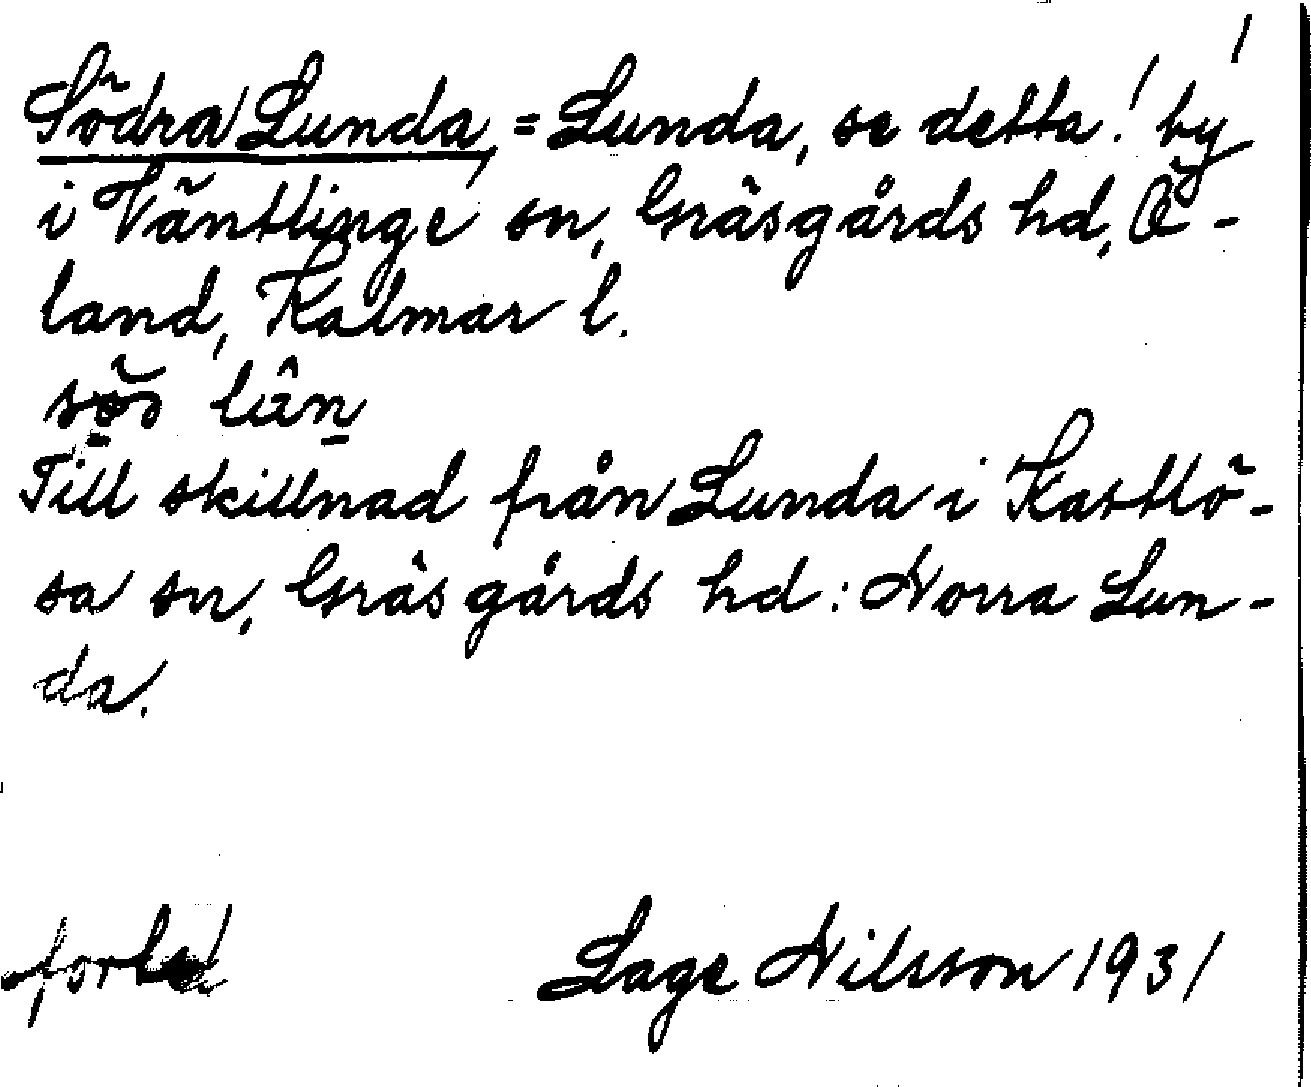 Södra Lunda, = Lunda, se detta! by
i Väntlinge sn, Gräsgårds hd, Ö-
land, Kalmar l.
Till skillnad från Lunda i Kastlö-
sa sn, Gräsgårds hd: Norra Lun-
da.
Lage Nilsson 1931